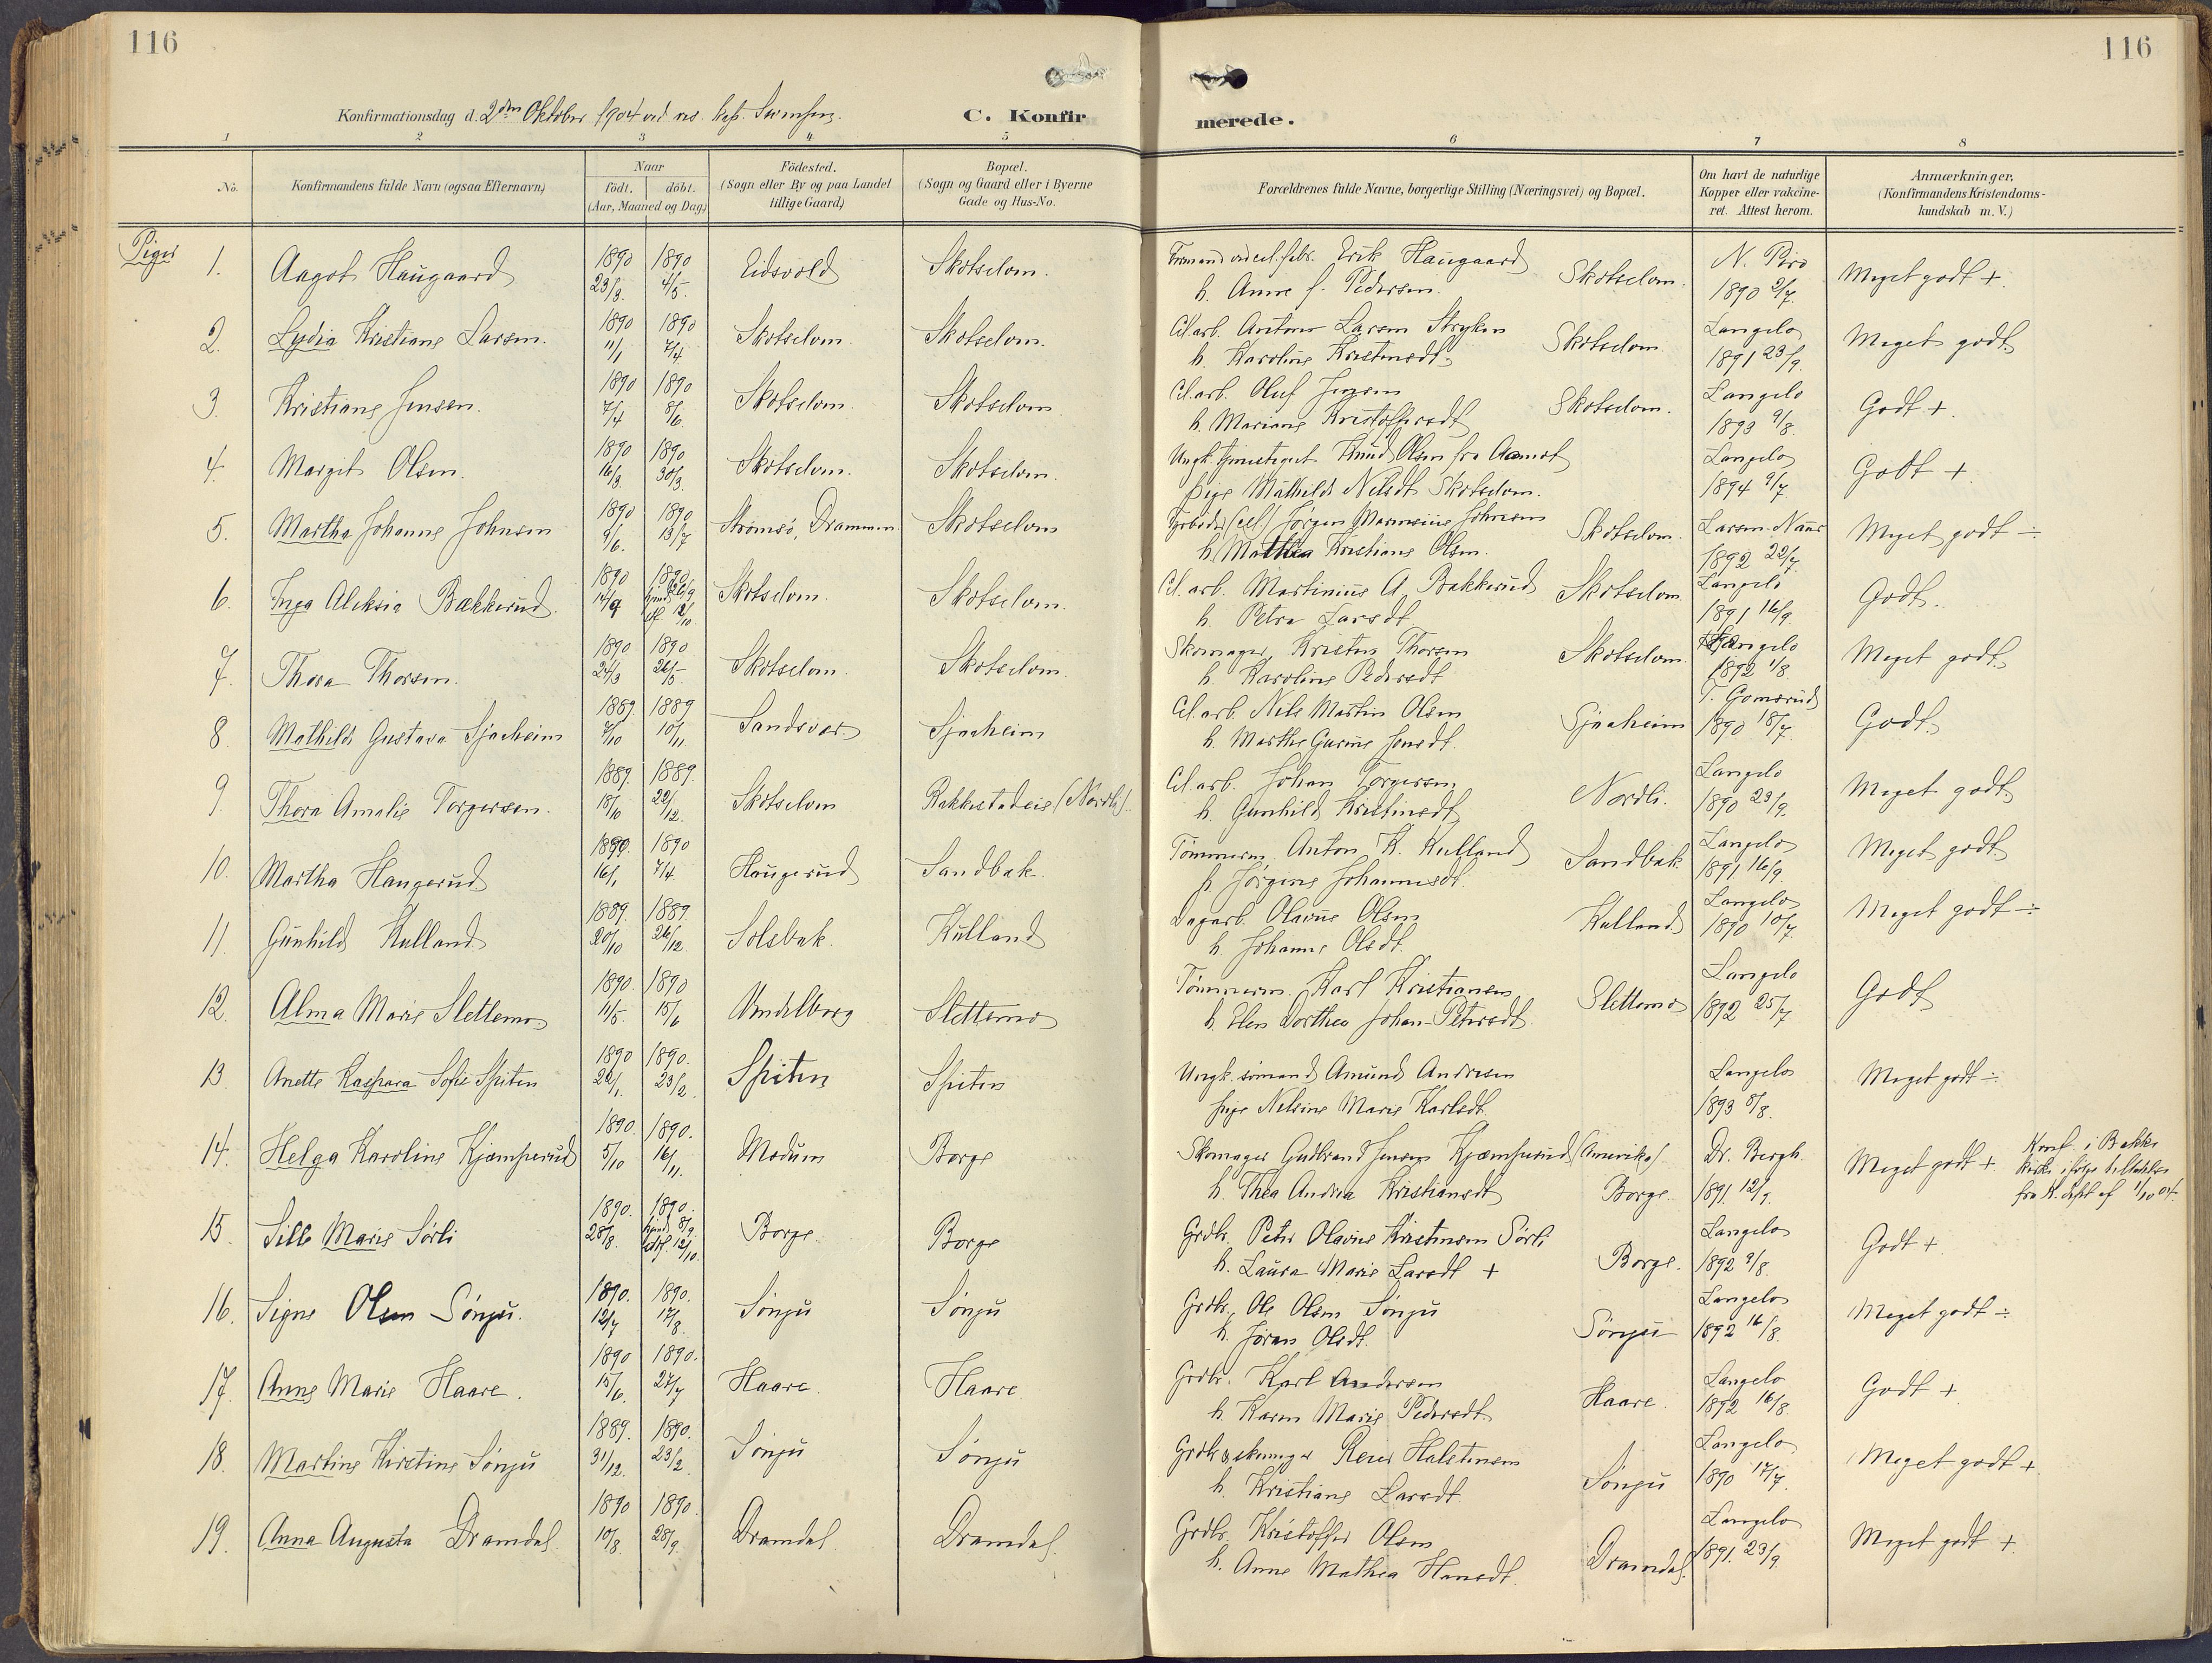 116
116
Konfirmationsdag d. 2den Oktober 1904 ved res. kap.
C. Konfir
merede.
1 2 3 4 5 6 7 8
No.
Konfirmandens fulde Navn (ogsaa Efternavn)
Naar
födt. döbt.
(Aar, Maaned og Dag)
Födested.
(Sogn eller By og paa Landet
tillige Gaard)
Bopæl.
(Sogn og Gaard eller i Byerne
Gade og Hus-No.
Forældrenes fulde Navne, borgerlige Stilling (Næringsvei) og Bopæl.
Om havt de naturlige
Kopper eller vakcine-
ret. Attest herom.
Anmærkninger.
(Konfirmandens Kristendoms-
kundskab m. V.)
Piger
1. Aagot Haugaard 1890 23/3. 1890 4/5. Eidsvold Skotselven.
Formand ved cel.fabr. Erik Haugaard
h. Anne f. Pedersen. Skotselven. 1890 2/7. Meget godt +.
2. Lydia Kristiane Larsen. 1890 11/1 1890 7/4 Skotselven. Skotselven.
Cel.arb. Anton Larsen Stryken
h. Karoline Kristensdt. Skotselven. Langelo 1891 23/9. Meget godt.
3. Kristiane Jensen. 1890 7/4 1890 8/6. Skotselven. Skotselven.
Cel.arb. Oluf Jensen
h. Mariane Kristoffersdt Skotselven. Langelo 1893 9/8. Godt +.
4. Margit Olsen. 1890 16/3. 1890 30/3. Skotselven. Skotselven.
Ungk. Knud Olsen fra Aamot
Pige Mathilde Nilsdt. Skotselven. Langelo 1894 9/7. Godt +
5. Martha Johanne Johnsen 1890 9/6. 1890 13/7 Strømsö, Drammen Skotselven
Jørgen Marensius Johnsen
h. Mathea Kristiane Olsen. Skotselven. Larsen-Naur 1892 22/7. Meget godt ÷
6. Inga Aleksia Bækkerud. 1890 14/9 1890 hjmd. 26/9 st. 12/10 Skotselven. Skotselven.
Cel. arb. Martinius A. Bakkerud
h. Petra Larsdt. Skotselven Langelo 1891 16/9. Godt.
7. Thora Thorsen. 1890 24/3 1890 26/5 Skotselven. Skotselven.
Skomager, Kristen Thorsen
h. Karoline Pedersdt. Skotselven. Langelo 1892 1/8. Meget godt.
8. Mathilde Gustava Sjaaheim 1889 7/10 1889 10/11. Sandsvær Sjaaheim
Cel.arb. Nils Martin Olsen
h. Marthe Gurine Jensdt. Sjaaheim T. Gomsrud 1890 18/7. Godt.
9. Thora Amalie Torgersen. 1889. 18/10 1889. 22/12. Skotselven Rakkestadeie (Nordli).
Cel.arb. Johan Torgersen
h. Gunhild Kristinsdt Nordli. Langelo 1890 23/9. Meget godt.
10. Martha Haugerud 1890. 16/1 1890 7/4. Haugerud Sandbak.
Tømmerm. Anton K. Kulland
h. Jørgine Johannesdt. Sandbak Langelo 1891 16/9 Meget godt.
11. Gunhild Kulland 1889. 20/10 1889. 26/12. Solsbak. Kulland
Dagarb. Olavus Olsen
h. Johanne Olsdt. Kulland Langelo 1890 10/7. Meget godt ÷
12. Alma Marie Slettemo 1890. 11/5. 1890 15/6 Vendelborg Slettemo
Tømmerm. Karl Kristiansen
h. Elen Dorthea Johan-Petersdt. Slettemo Langelo 1892 25/7 Godt
13 Anette Kaspara Sofie Spiten 1890 22/1. 1890. 23/2. Spiten Spiten
Ungk. sömand Amund Andersen
Pige Nilsine Marie Karlsdt. Langelo 1893 8/8. Meget godt ÷
14. Helga Karoline Kjæmperud 1890. 5/10 1890. 16/11. Modum Borge
Skomager Gudbrand Jensen Kjæmperud (Amerika)
h. Thea Andrea Kristiansdt Borge. Dr. Bergh. 1891. 12/9. Meget godt + Konf. i Bakke kirke ifølge
fra K. dept. af 1/10 04.
15. Sille Marie Sørli 1890. 28/8. 1890. hjmd. 8/9. 12/10. Borge. Borge
Grdbr. Peter Olavus Kristensen Sørli
h. Laura Marie Larsdt + Borge. Langelo 1892 9/8. Godt +
16. Signe Olsen Sönju. 1890. 12/7 1890. 17/8. Sönju Sönju
Grdbr. Ole Olsen Sönju
h. Jøran Olsdt. Sönju Langelo 1892 16/8. Meget godt ÷
17. Anne Marie Haare. 1890 15/6. 1890. 27/7 Haare. Haare.
Grdbr. Karl Andersen
h. Karen Marie Pedersdt. Haare. Langelo 1892 16/8. Godt +
18. Martine Kirstine Sönju 1889. 31/12. 1890. 23/2. Sönju Sönju
Grdbr. & skomager Reier Halstensen
h. Kristiane Larsdt. Sönju Langelo 1890 17/7. Meget godt +
19. Anna Augusta Dramdal. 1890 10/8 1890. 28/9. Dramdal. Dramdal.
Grdbr. Kristoffer Olsen
h. Anne Mathea Hansdt. Dramdal. Langelo 1891. 23/9 Meget godt +.